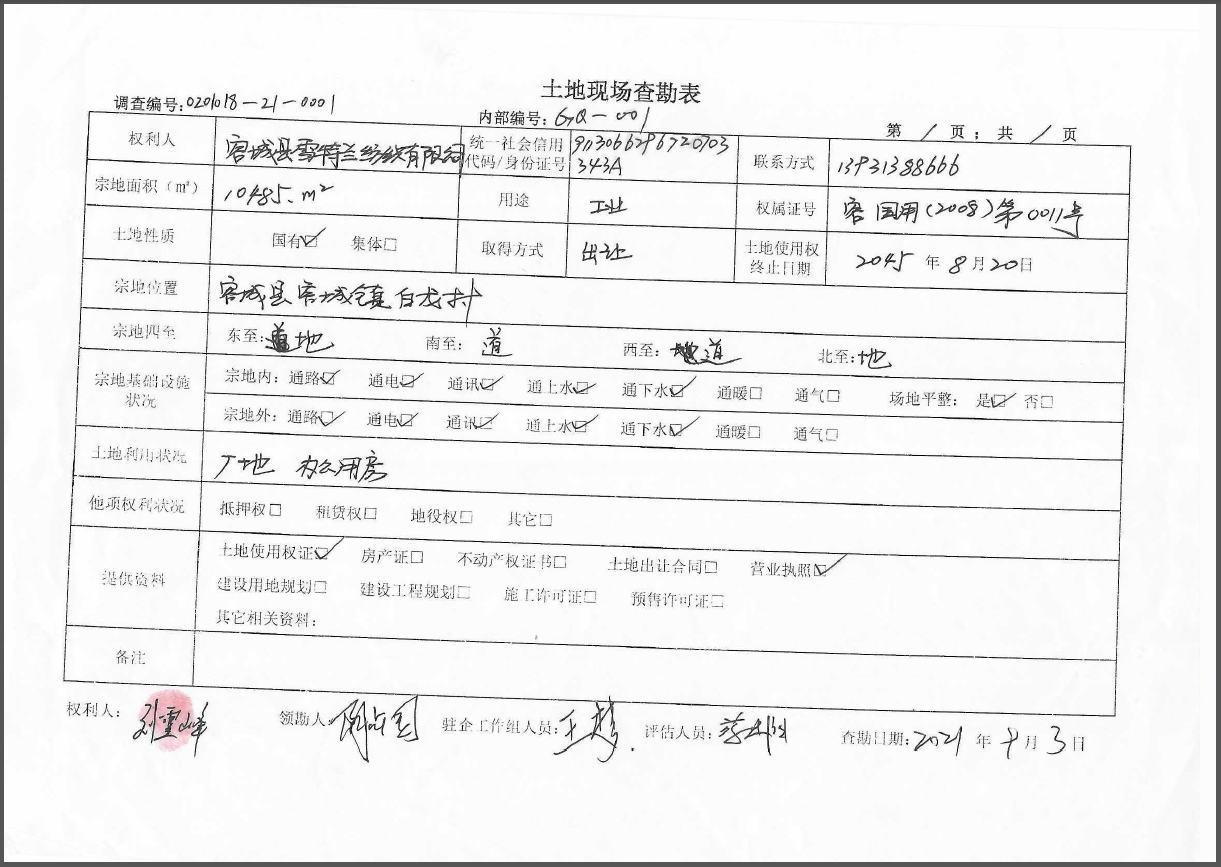 土地现场查勘表
调查编号:0201018-21-0001
内部编号:GQ-001
第 / 页；共 / 页
权利人 容城县雪特兰纺织有限公司 统一社会信用代码/身份证号 联系方式 13931388666
宗地面积（㎡） 10485.m² 用途 工业 权属证号 容国用(2008)第0011号
土地性质 国有☑ 集体□ 取得方式 出让 土地使用权终止日期 2045 年 8 月 20 日
宗地位置 容城县容城镇白龙村
宗地四至 东至:地 南至: 道 西至:道 北至:地
宗地基础设施状况 宗地内: 通路☑ 通电☑ 通讯☑ 通上水☑ 通下水☑ 通暖□ 通气□ 场地平整: 是☑ 否□
宗地外: 通路☑ 通电☑ 通讯☑ 通上水☑ 通下水☑ 通暖□ 通气□
土地利用状况 厂地 办公用房
他项权利状况 抵押权□ 租赁权□ 地役权□ 其它□
提供资料 土地使用权证☑ 房产证□ 不动产权证书□ 土地出让合同□ 营业执照☑
建设用地规划□ 建设工程规划□ 施工许可证□ 预售许可证□
其它相关资料:
备注
权利人: 刘雪峰 领勘人: 驻企工作组人员: 王梦 评估人员: 查勘日期: 2021 年 月 3 日